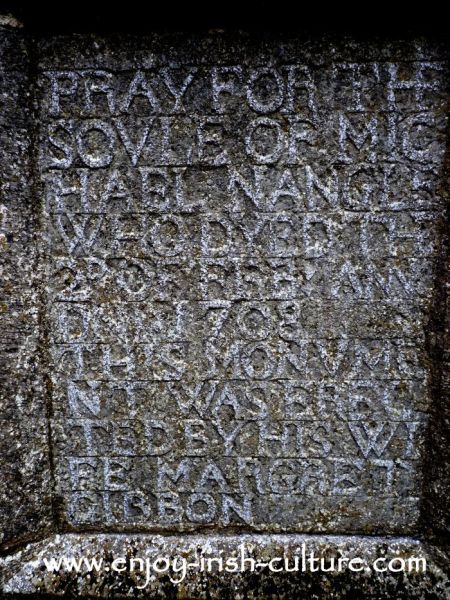 PRAY FOR THE
SOVLE OF MIC
HAEL NANGLE
WHO DYED THE
OF FEB
DOM 1708
THIS MONVME
NT WAS EREC
TED BY HIS WI
FE MARGRETT
GIBBON
www.enjoy-irish-culture.com